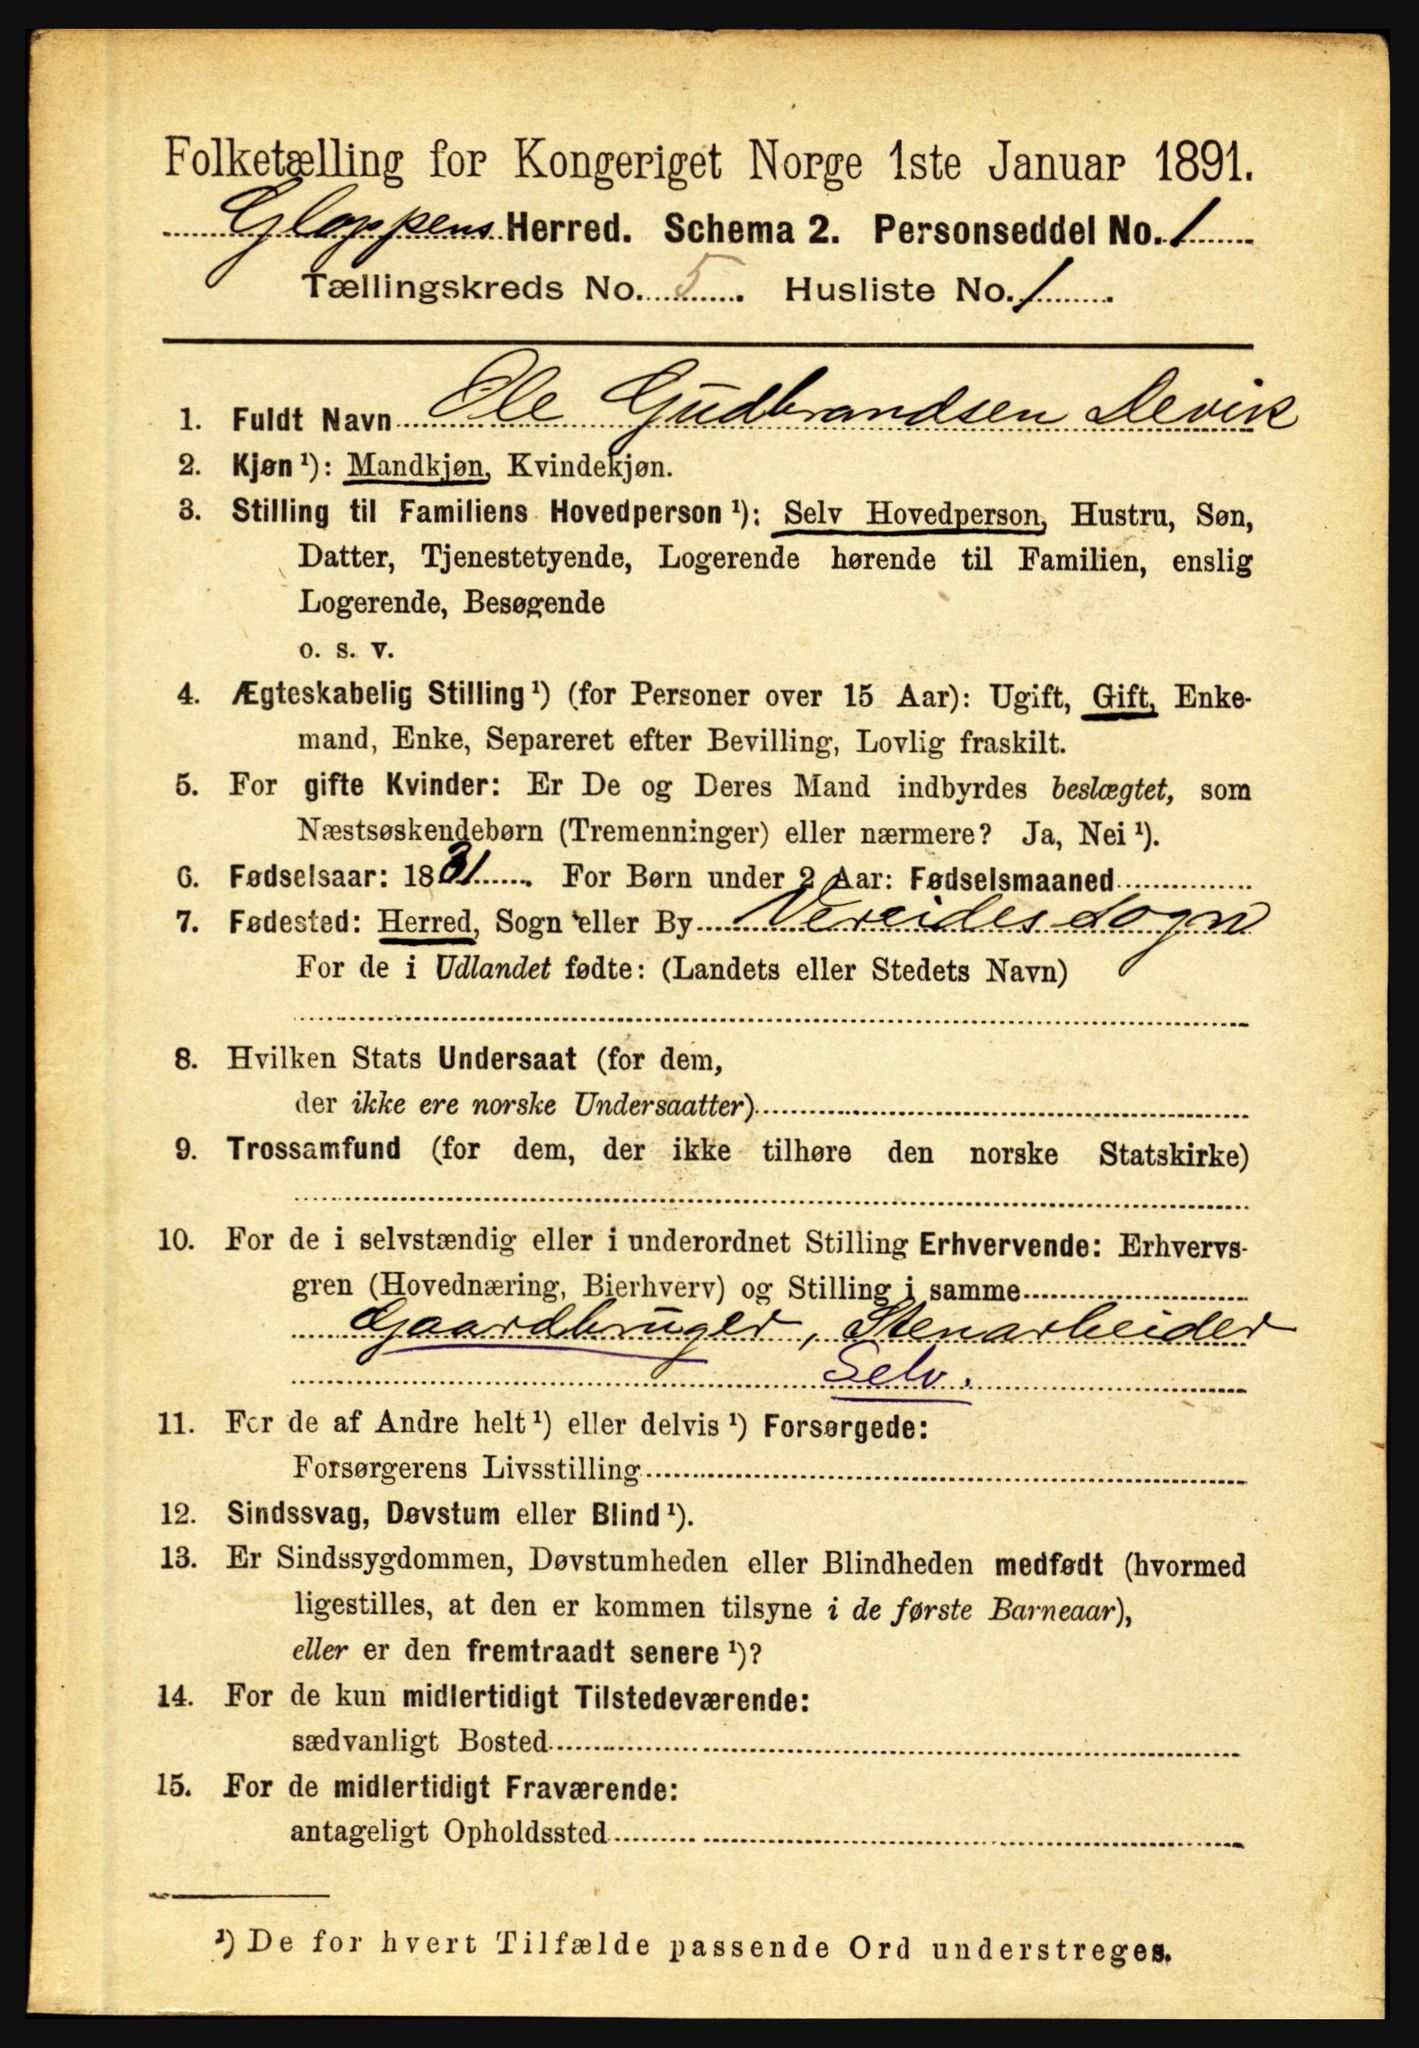 Folketælling for Kongeriget Norge 1ste Januar 1891.
Gloppens Herred. Schema 2. Personseddel No. 1
Tællingskreds No. 5. Husliste No. 1.
1. Fuldt Navn Ole Gudbrandsen Devik
2. Kjøn ¹): Mandkjøn, Kvindekjøn.
3. Stilling til Familiens Hovedperson ¹): Selv Hovedperson, Hustru, Søn,
Datter, Tjenestetyende, Logerende hørende til Familien, enslig
Logerende, Besøgende
o. s. v.
4. Ægteskabelig Stilling ¹) (for Personer over 15 Aar): Ugift, Gift, Enke-
mand, Enke, Separeret efter Bevilling, Lovlig fraskilt.
5. For gifte Kvinder: Er De og Deres Mand indbyrdes beslægtet, som
Næstsøskendebørn (Tremenninger) eller nærmere? Ja, Nei ¹).
6. Fødselsaar: 1831. For Børn under 2 Aar: Fødselsmaaned
7. Fødested: Herred, Sogn eller By Vereides Sogn
For de i Udlandet fødte: (Landets eller Stedets Navn)
8. Hvilken Stats Undersaat (for dem,
der ikke ere norske Undersaatter)
9. Trossamfund (for dem, der ikke tilhøre den norske Statskirke)
10. For de i selvstændig eller i underordnet Stilling Erhvervende: Erhvervs-
gren (Hovednæring, Bierhverv) og Stilling i samme
Gaardbruger, Stenarbeider
Selv.
11. For de af Andre helt ¹) eller delvis ¹) Forsørgede:
Forsørgerens Livsstilling
12. Sindssvag, Døvstum eller Blind ¹).
13. Er Sindssygdommen, Døvstumheden eller Blindheden medfødt (hvormed
ligestilles, at den er kommen tilsyne i de første Barneaar),
eller er den fremtraadt senere ¹)?
14. For de kun midlertidigt Tilstedeværende:
sædvanligt Bosted
15. For de midlertidigt Fraværende:
antageligt Opholdssted
¹) De for hvert Tilfælde passende Ord understreges.